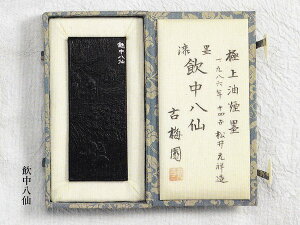 極上油煙墨
一九八六年 十四方 松井元祥造
漆墨
飲中八仙
古梅園
飲中八仙
飲中八仙